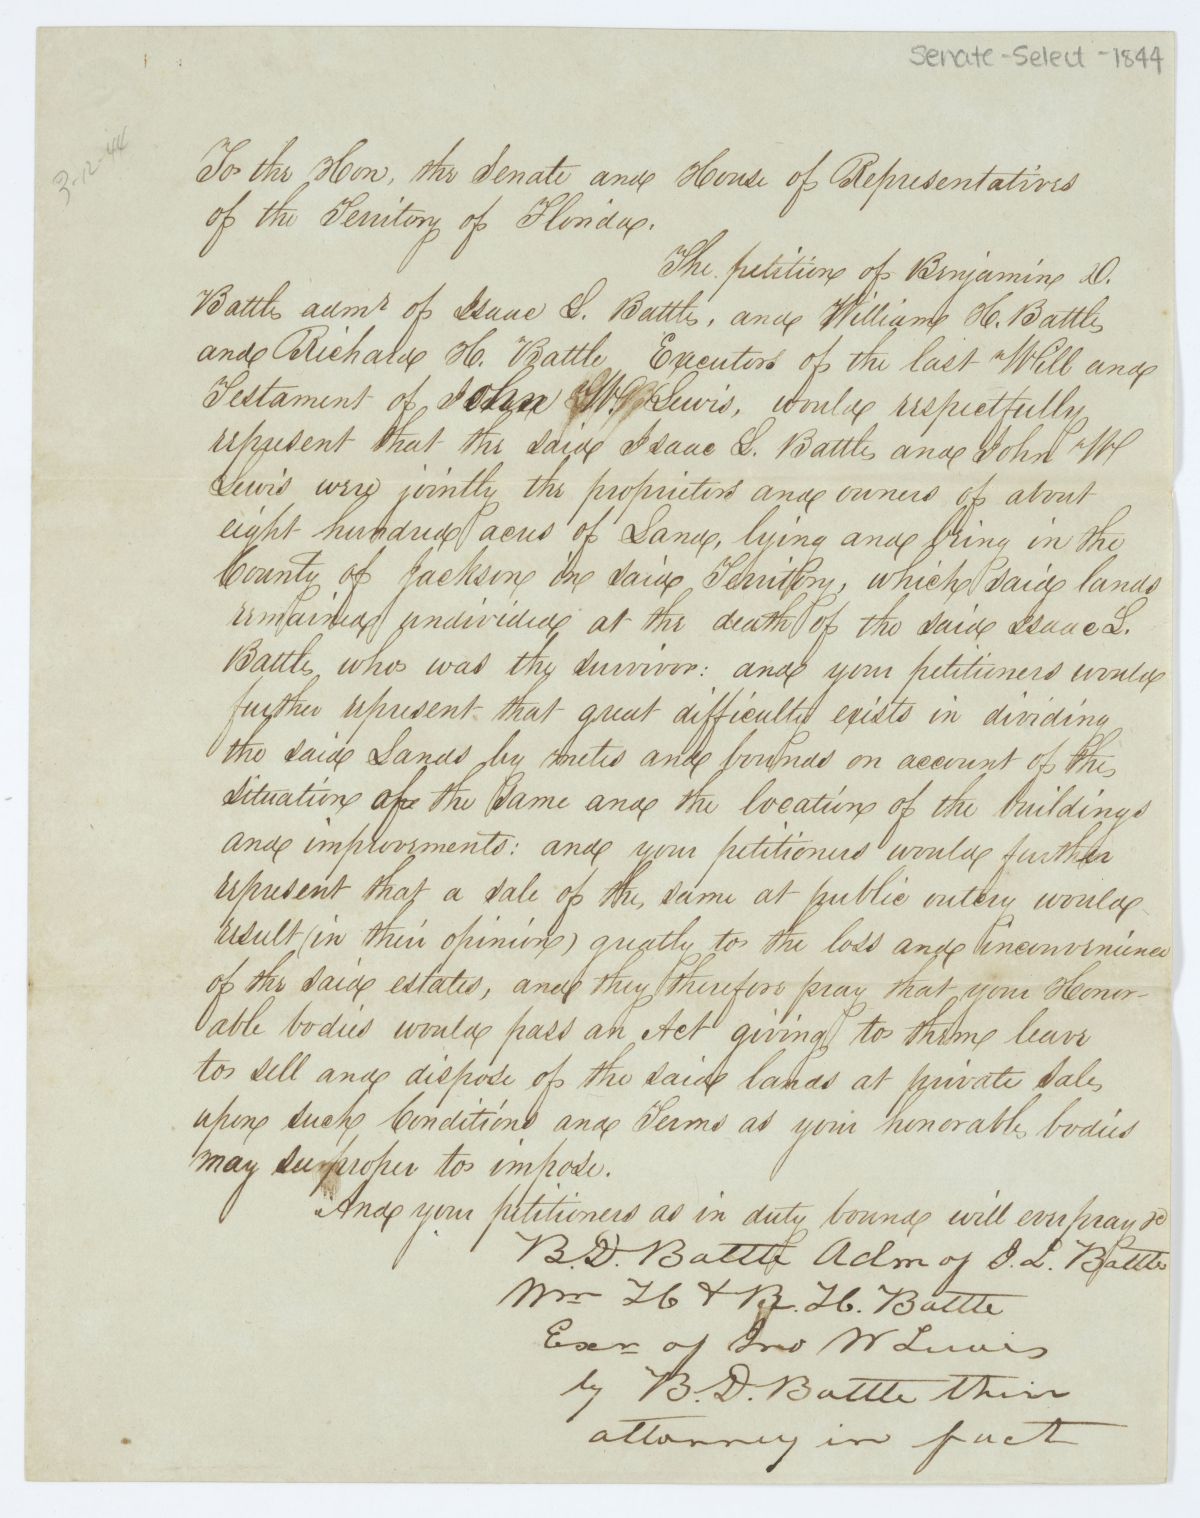 Senate - Select - 1844
3-12-44
To the Hon, the Senate and House of Representatives
of the Territory of Florida.
The petition of Benjamin D.
Battle admr of Isaac L. Battle, and William H. Battle
and Richard H. Battle Executors of the last Will and
Testament of John W. Lewis, would respectfully
represent that the said Isaac L. Battle and John W
Lewis were jointly the proprietors and owners of about
eight hundred acres of Land, lying and being in the
County of Jackson in said Territory, which said lands
remained undivided at the death of the said Isaac L.
Battle who was the survivor: and your petitioners would
further represent that great difficulty exists in dividing
the said Lands by metes and bounds on account of the
situation of the same and the location of the buildings
and improvements: and your petitioners would further
represent that a sale of the same at public outcry would
result (in their opinion) greatly to the loss and inconvenience
of the said estates, and they therefore pray that your Honor-
able bodies would pass an Act giving to them leave
to sell and dispose of the said lands at private sale
upon such Conditions and Terms as your honorable bodies
may see proper to impose.
And your petitioners as in duty bound will ever pray &c
B. D. Battle Adm of I. L. Battle
Wm H & R. H. Battle
Exr of Jno W Lewis
by B. D. Battle their
attorney in fact